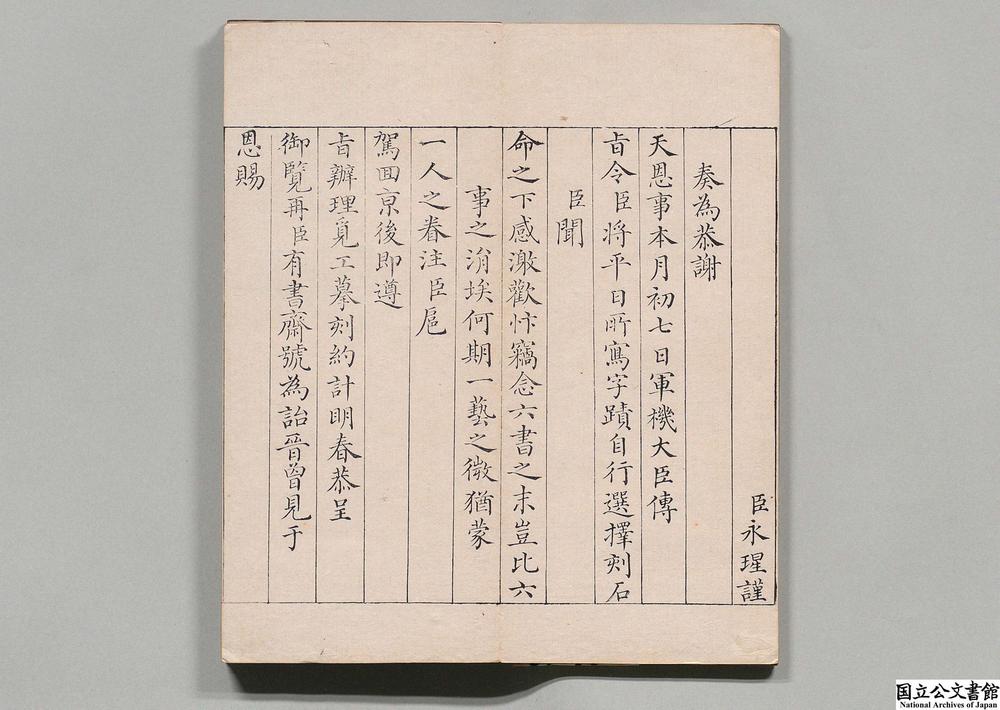 臣永瑆謹
奏為恭謝
天恩事本月初七日軍機大臣傳
旨令臣將平日所寫字蹟自行選擇刻石
臣聞
命之下感激歡忭竊念六書之末豈比六
事之涓埃何期一藝之微猶蒙
一人之眷注臣扈
駕回京後即遵
旨辦理覓工摹刻約計明春恭呈
御覽再臣有書齋號為詒晉曾見于
恩賜
国立公文書館
National Archives of Japan